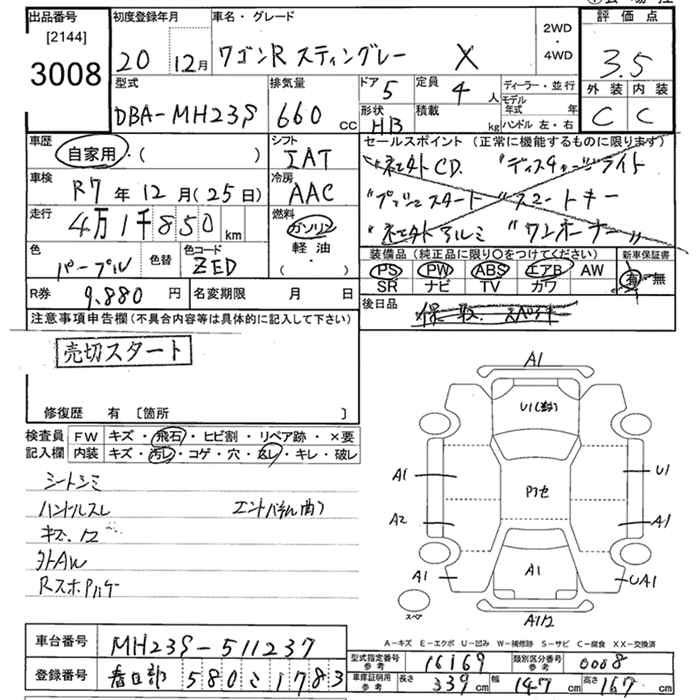 出品番号 初度登録年月 車名・グレード 評価点
[2144] 2WD
3008 20 12月 ワゴンR スティングレー X ・ 3.5
4WD
型式 排気量 ドア 5 定員 4人 ディーラー・並行 外装 内装
DBA-MH23S 660cc 形状 HB 積載 kg モデル年式 年 C C
ハンドル 左・右
車歴 シフト セールスポイント (正常に機能するものに限ります)
自家用・( ) IAT "社外CD "ディスチャージライト
車検 R7年12月(25日) 冷房 AAC "プッシュスタート "スマートキー
走行 4万1千850km 燃料 ガソリン "社外アルミ "ワンオーナー"
軽油
・( )
色 パープル 色替 色コード ZED 装備品(純正品に限り○をつけてください) 新車保証書
PS PW ABS エアB AW 有・無
SR ナビ TV カワ
R券 9,880円 名変期限 月 日 後日品
注意事項申告欄(不具合内容等は具体的に記入して下さい)
売切スタート
修復歴 有 [箇所 ]
検査員 FW キズ・飛石・ヒビ割・リペア跡・×要
記入欄 内装 キズ・汚レ・コゲ・穴・スレ・キレ・破レ
シートシミ
ハンドルスレ エンドパネル曲り
キズ、凹
外AW
RスポPハゲ
A1
U1(数)
A1 U1
Pﾌｾ
A2 A1
A1 A1 UA1
スペア A1/2
A-キズ E-エクボ U-凹み W-補修跡 S-サビ C-腐食 XX-交換済
車台番号 MH23S-511237
型式指定番号参考 16169 類別区分番号参考 0008
登録番号 春日部 580 こ 1783
車庫証明用参考 長さ 339cm 幅 147cm 高さ 167cm